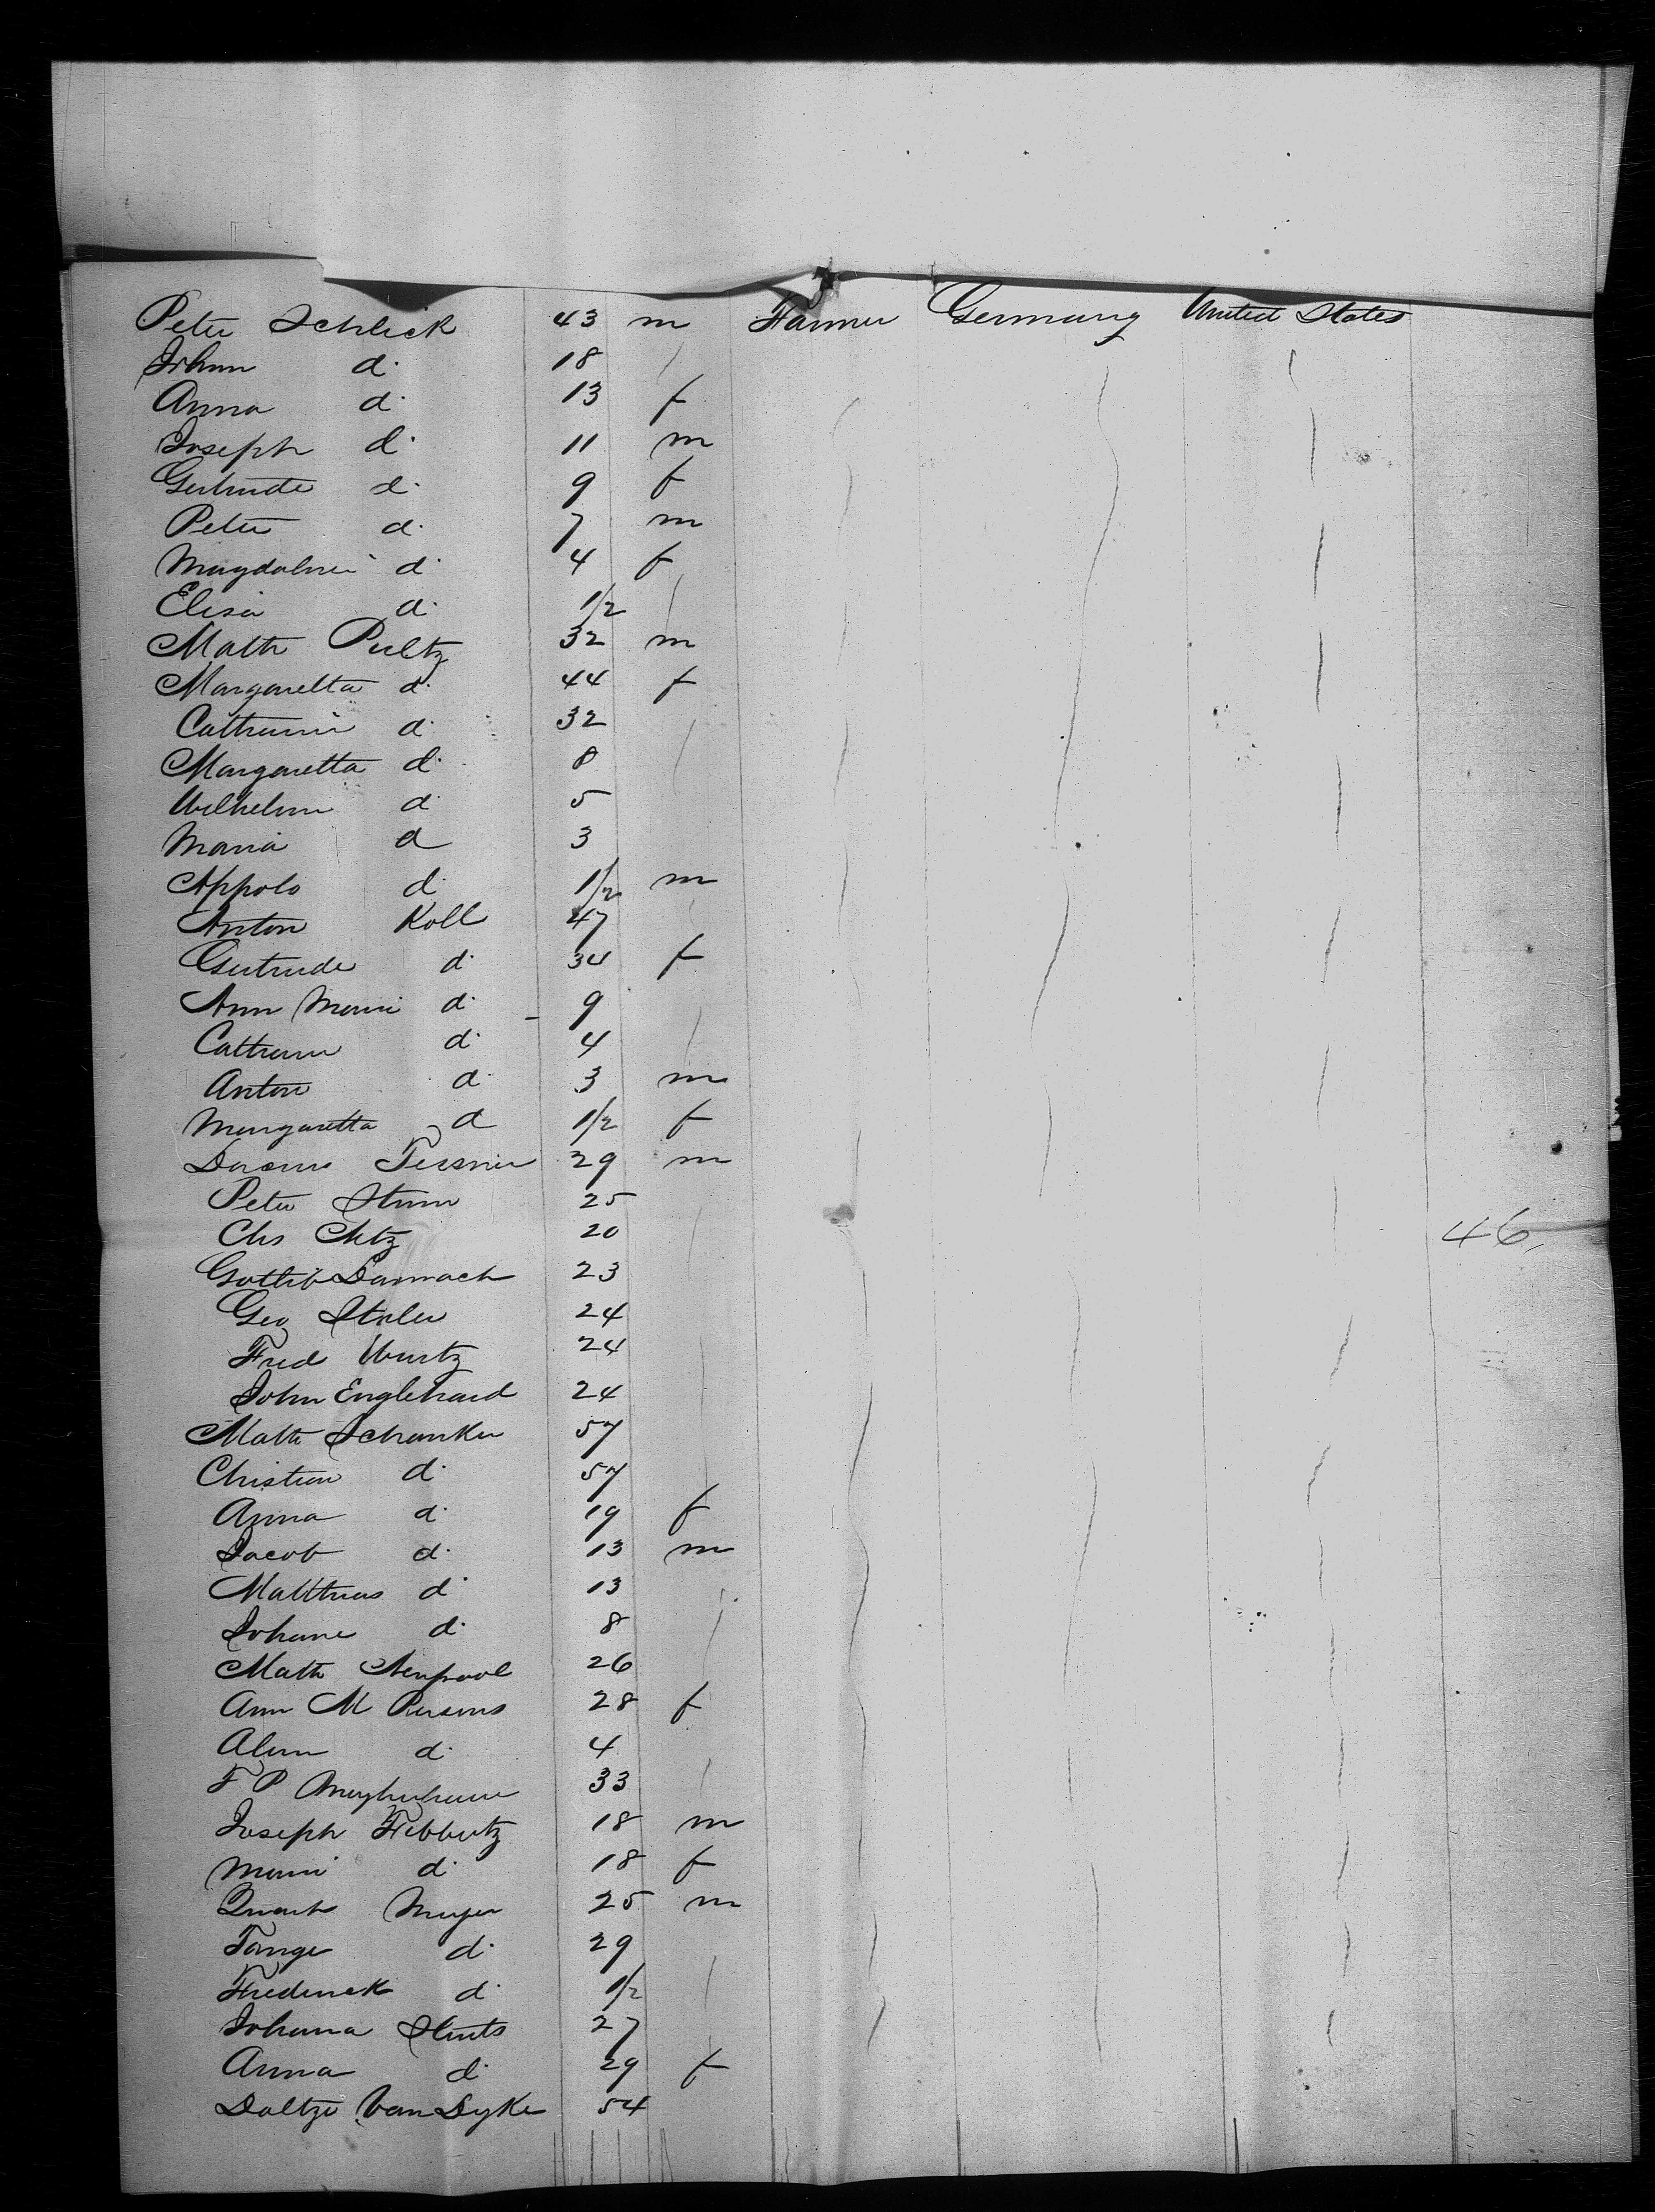 Peter Schlick 43 m Farmer Germany United States
Johann d. 18
Anna d. 13 f
Joseph d. 11 m
Gertrude d. 9 f
Peter d. 7 m
Magdalene d. 4 f
Elisa d. 1/2
Math Peultz 32 m
Margaretta d. 44 f
Cathrine d. 32
Margaretta d. 8
Wilhelm d. 5
Maria d 3
Appolo d. 1/2 m
Anton Koll 47
Gertrude d. 34 f
Ann Marie d. 9
Cathrine d. 4
Anton d. 3 m
Margaretta d 1/2 f
29 m
Peter Sturm 25
Chs 20
Gottlib Dannach 23
Geo Stoler 24
Fred Wurtz 24
John Englehard 24
Math Schanker 57
Christian d. 57
Anna d. 19 f
Jacob d. 13 m
Matthias d. 13
Johane d. 8
Math 26
Ann M Persons 28 f
d. 4
F P 33
Joseph Fibbutz 18 m
Marie d. 18 f
Meyer 25 m
d. 29
Frederick d. 1/2
Johana 27
Anna d. 29 f
Van Dyke 54
46